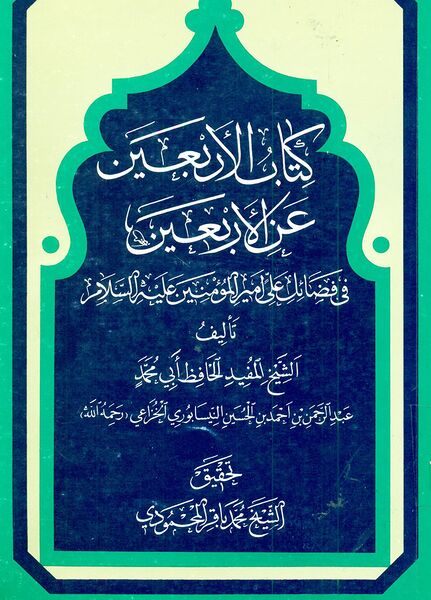 كتاب الأربعين
عن الأربعين
في فضائل علي أمير المؤمنين عليه السلام
تأليف
الشيخ المفيد الحافظ أبي محمد
عبد الرحمن بن احمد بن الحسين النيسابوري الخزاعي (رحمه الله)
تحقيق
الشيخ محمد باقر المحمودي